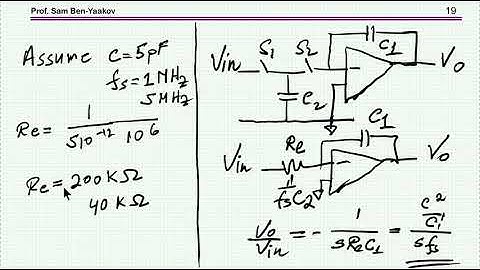 Prof. Sam Ben-Yaakov
19
Assume C = 5pF
fs = 1MHz
5MHz
Re = 1 / 5 10^-12 10^6
Re = 200KΩ
40KΩ
Vin S1 S2 C1 Vo
C2
Vin Re C1 Vo
1/fsC2
Vo/Vin = - 1/SReC1 = C2/C1 / Sfs